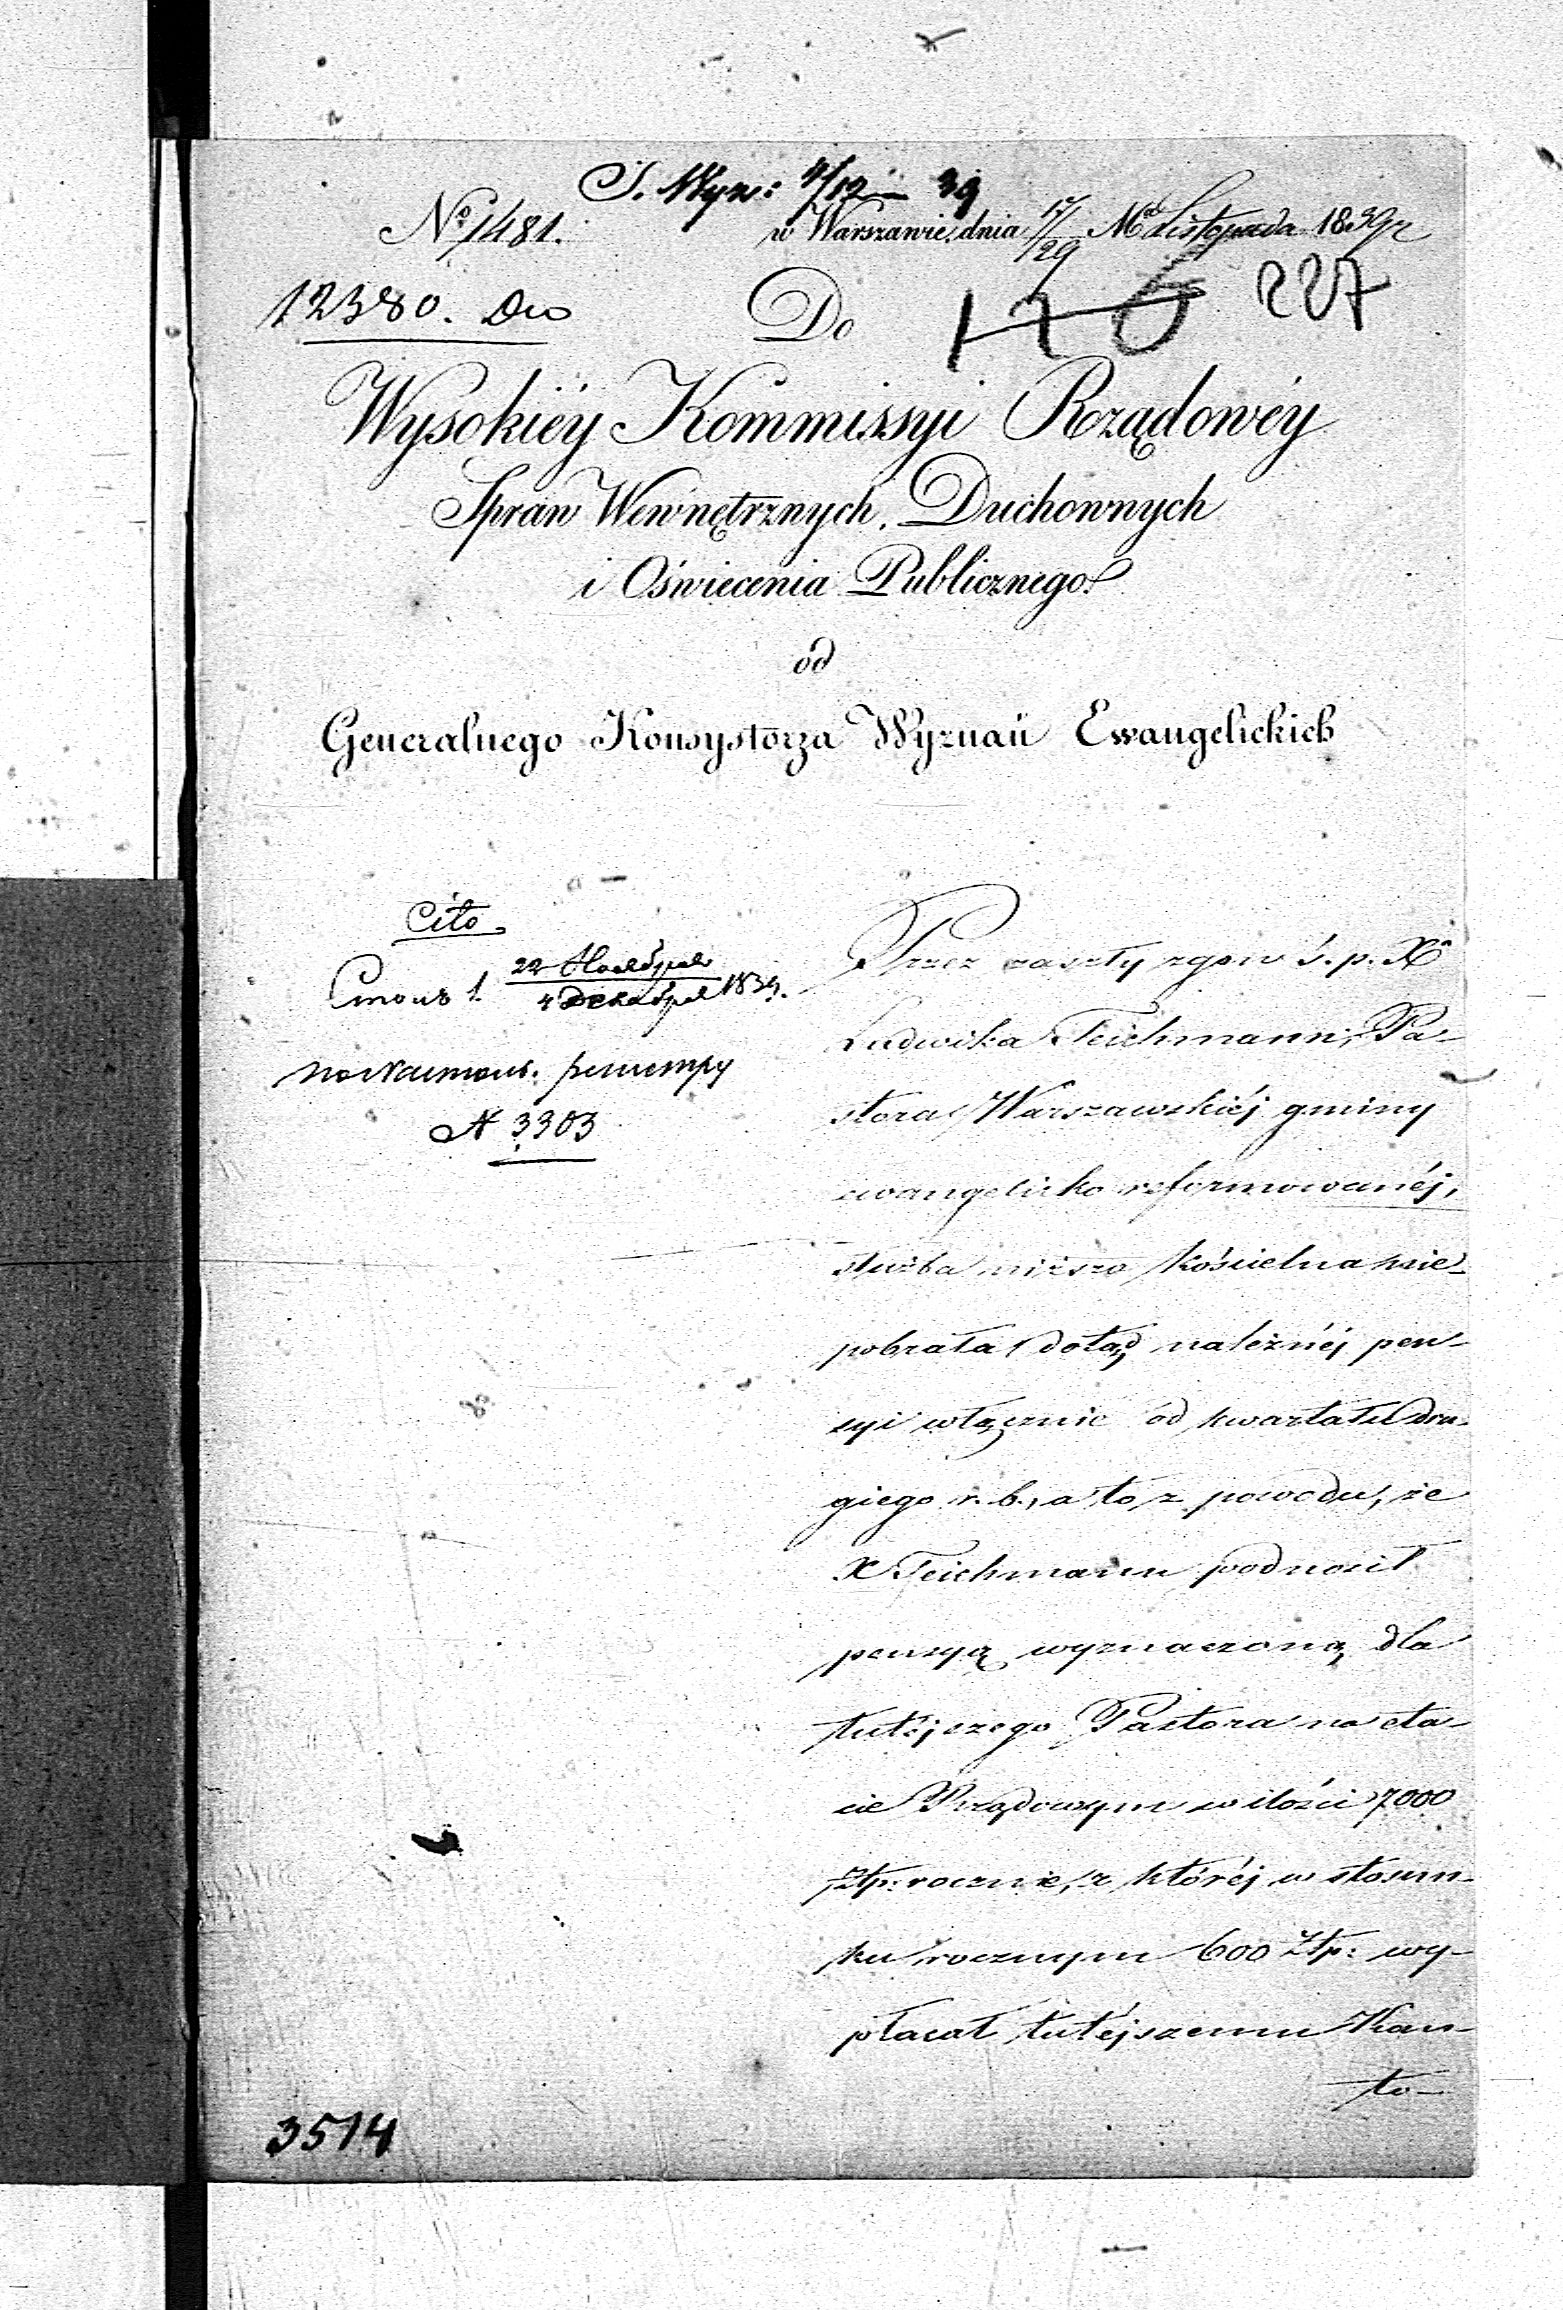 S. Wyzn: 4/12 — 39
No 1481.
w Warszawie, dnia 17/29 Mca Listopada 1839 r
12380.
Do
126 227
Wysokiéy Kommissyi Rządowéy
Spraw Wewnętrznych, Duchownych
i Oświecenia Publicznego.
od
Generalnego Konsystorza Wyznań Ewangelickich
Cito
22 Ноября
4 Декабря 1839.
№ 3303
Przez zaszły zgon ś. p. Xa
Ludwika Teichmann, Pa-
stora Warszawskiéj gminy
ewangelicko reformowanéj,
służba niższa kościelna nie-
pobrała dotąd należnéj pen-
syi włącznie od kwartału dru-
giego r. b., a to z powodu, że
X Teichmann podnosił
pensyą wyznaczoną dla
tutéjszego Pastora na eta-
cie Rządowym w ilości 7000
Złp: rocznie, z któréj w stosun-
ku rocznym 600 Złp: wy-
płacał tutéjszemu Kan-
to-
3514